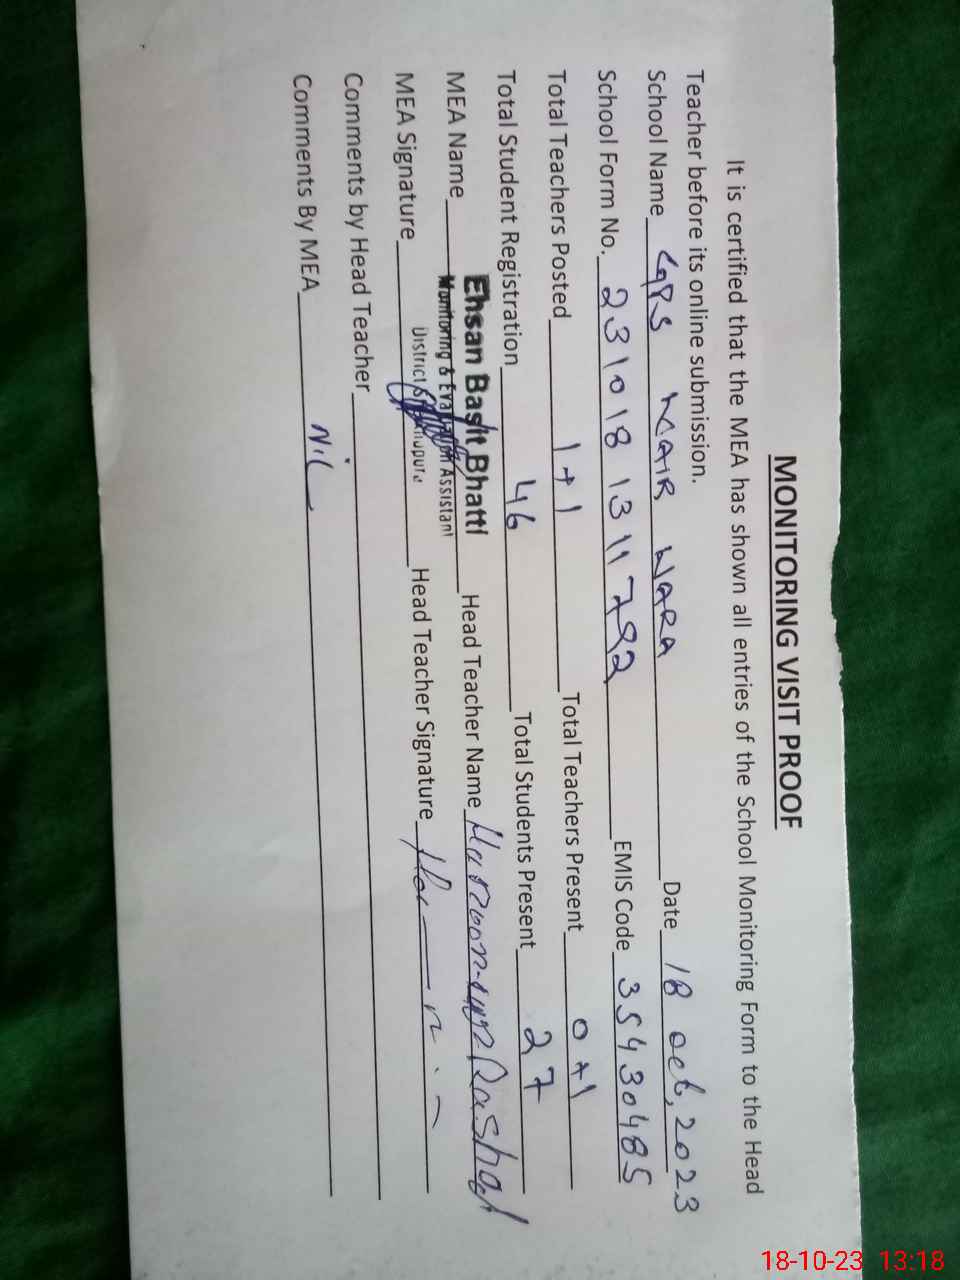 MONITORING VISIT PROOF
It is certified that the MEA has shown all entries of the School Monitoring Form to the Head
Teacher before its online submission.
School Name GPS NAIR WARA Date 18 Oct, 2023
School Form No. 2310181311792 EMIS Code 35430485
Total Teachers Posted 1+1 Total Teachers Present 0+1
Total Student Registration 46 Total Students Present 27
MEA Name Ehsan Basit Bhatti Head Teacher Name Rashad
Monitoring & Evaluation Assistant
MEA Signature District Head Teacher Signature
Comments by Head Teacher
Comments By MEA Nil
18-10-23 13:18